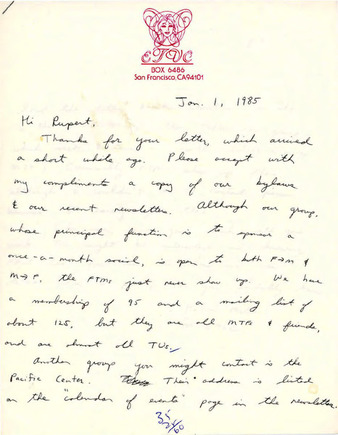 ETVC
BOX 6486
San Francisco, CA 94101
Jan. 1, 1985
Hi Rupert,
Thanks for your letter, which arrived
a short while ago. Please accept with
my compliments a copy of our bylaws
& our recent newsletter. Although our group,
whose principal function is to sponsor a
once-a-month social, is open to both F→M &
M→F, the FTMs just never show up. We have
a membership of 95 and a mailing list of
about 125, but they are all MTFs & friends,
and are almost all TVs.
Another group you might contact is the
Pacific Center. Their address is listed
on the "calendar of events" page in the newsletter.